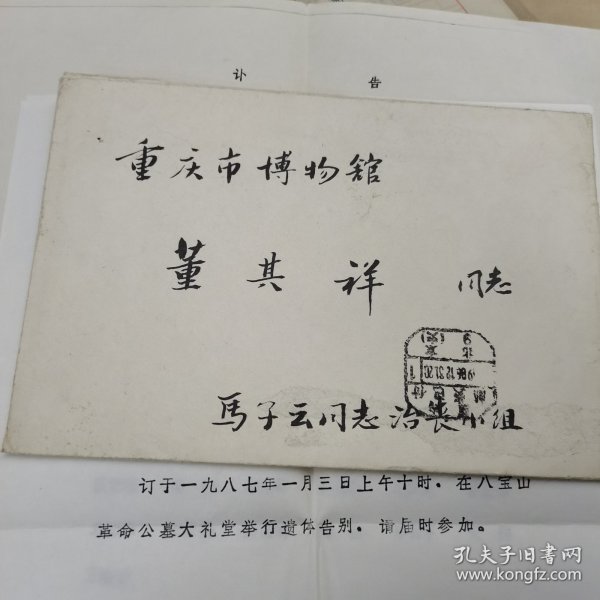 讣 告
重庆市博物館
董其祥 同志
馬子云同志治喪小组
订于一九八七年一月三日上午十时，在八宝山
革命公墓大礼堂举行遗体告别。请届时参加。
孔夫子旧书网
www.kongfz.com